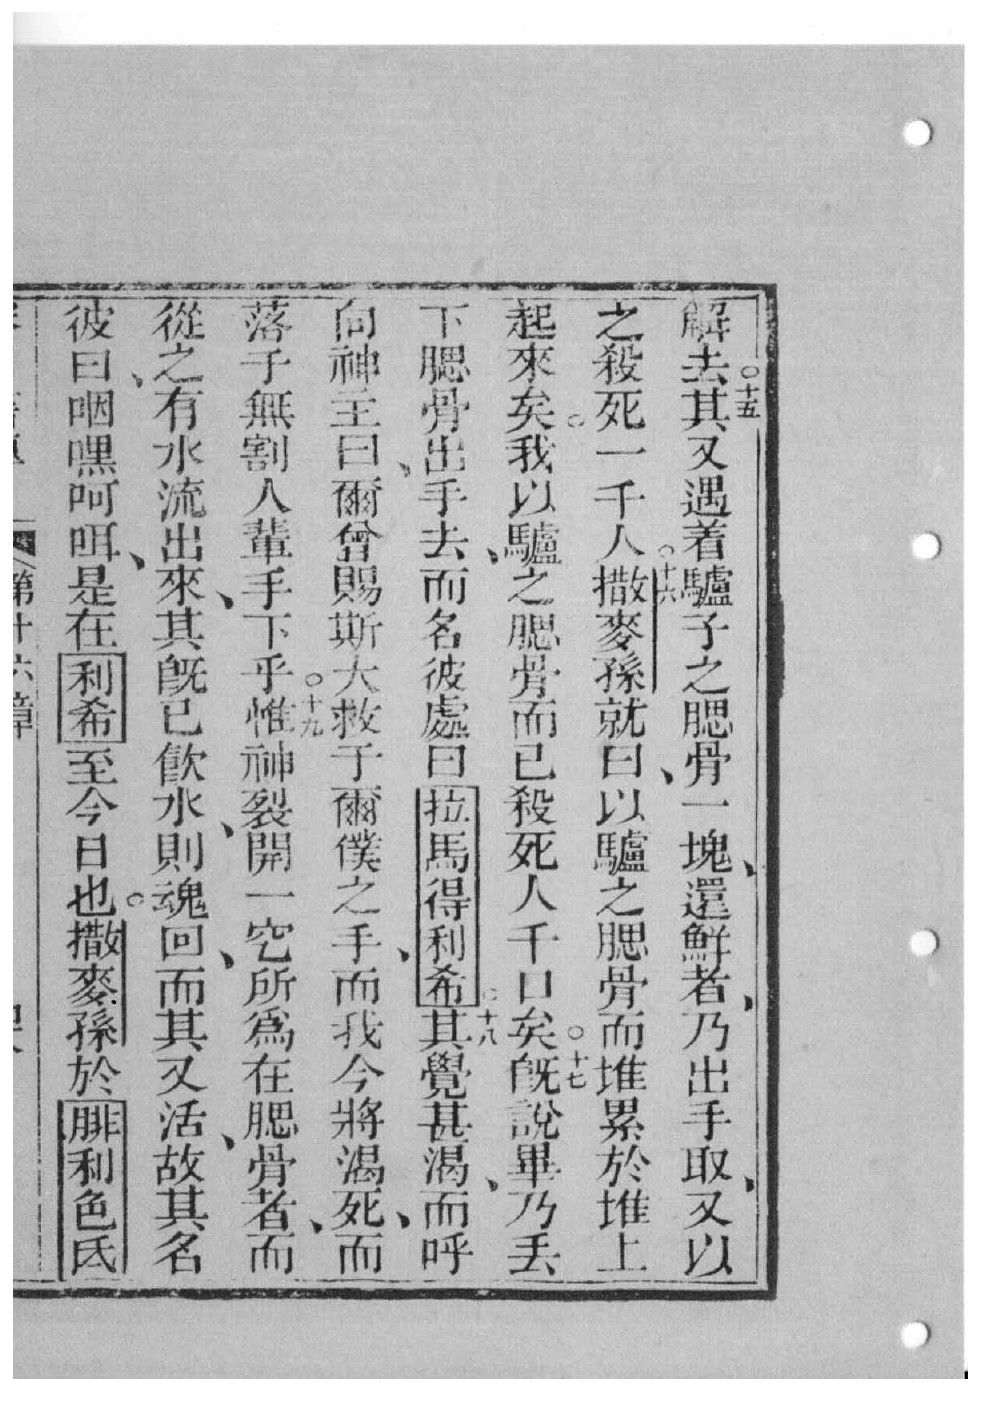 解去○十五其又遇着驢子之腮骨一塊、還鮮者、乃出手取、又以
之殺死一千人○十六撒麥孫就曰、以驢之腮骨而堆累於堆上
起來矣。我以驢之腮骨而已殺死人千口矣○十七旣說畢乃丢
下腮骨出手去、而名彼處曰拉馬得利希○十八其覺甚渴、而呼
向神主曰、爾曾賜斯大救于爾僕之手、而我今將渴死、而
落于無割人輩手下乎○十九惟神裂開一空所爲在腮骨者、而
從之有水流出來、其旣已飮水、則魂回、而其又活、故其名
彼曰、咽嘿呵咡、是在利希至今日也。撒麥孫於腓利色氏
第十六章